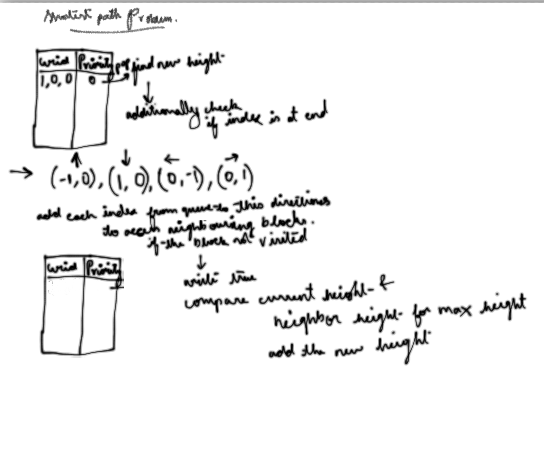 Shortest path Problem.
Grid Priority
1,0,0 0
pop find new height
additionally check
if index is at end
→ (-1,0), (1,0), (0,-1), (0,1)
add each index from queue to this directions
to access neighbouring block.
if the block not visited
Grid Priority
write true
compare current height &
neighbor height for max height
add the new height